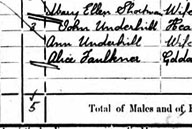 Mary Ellen Do Wife
3 John Underhill Hea
Ann Underhill Wife
Alice Faulkner
5 Total of Males and of F